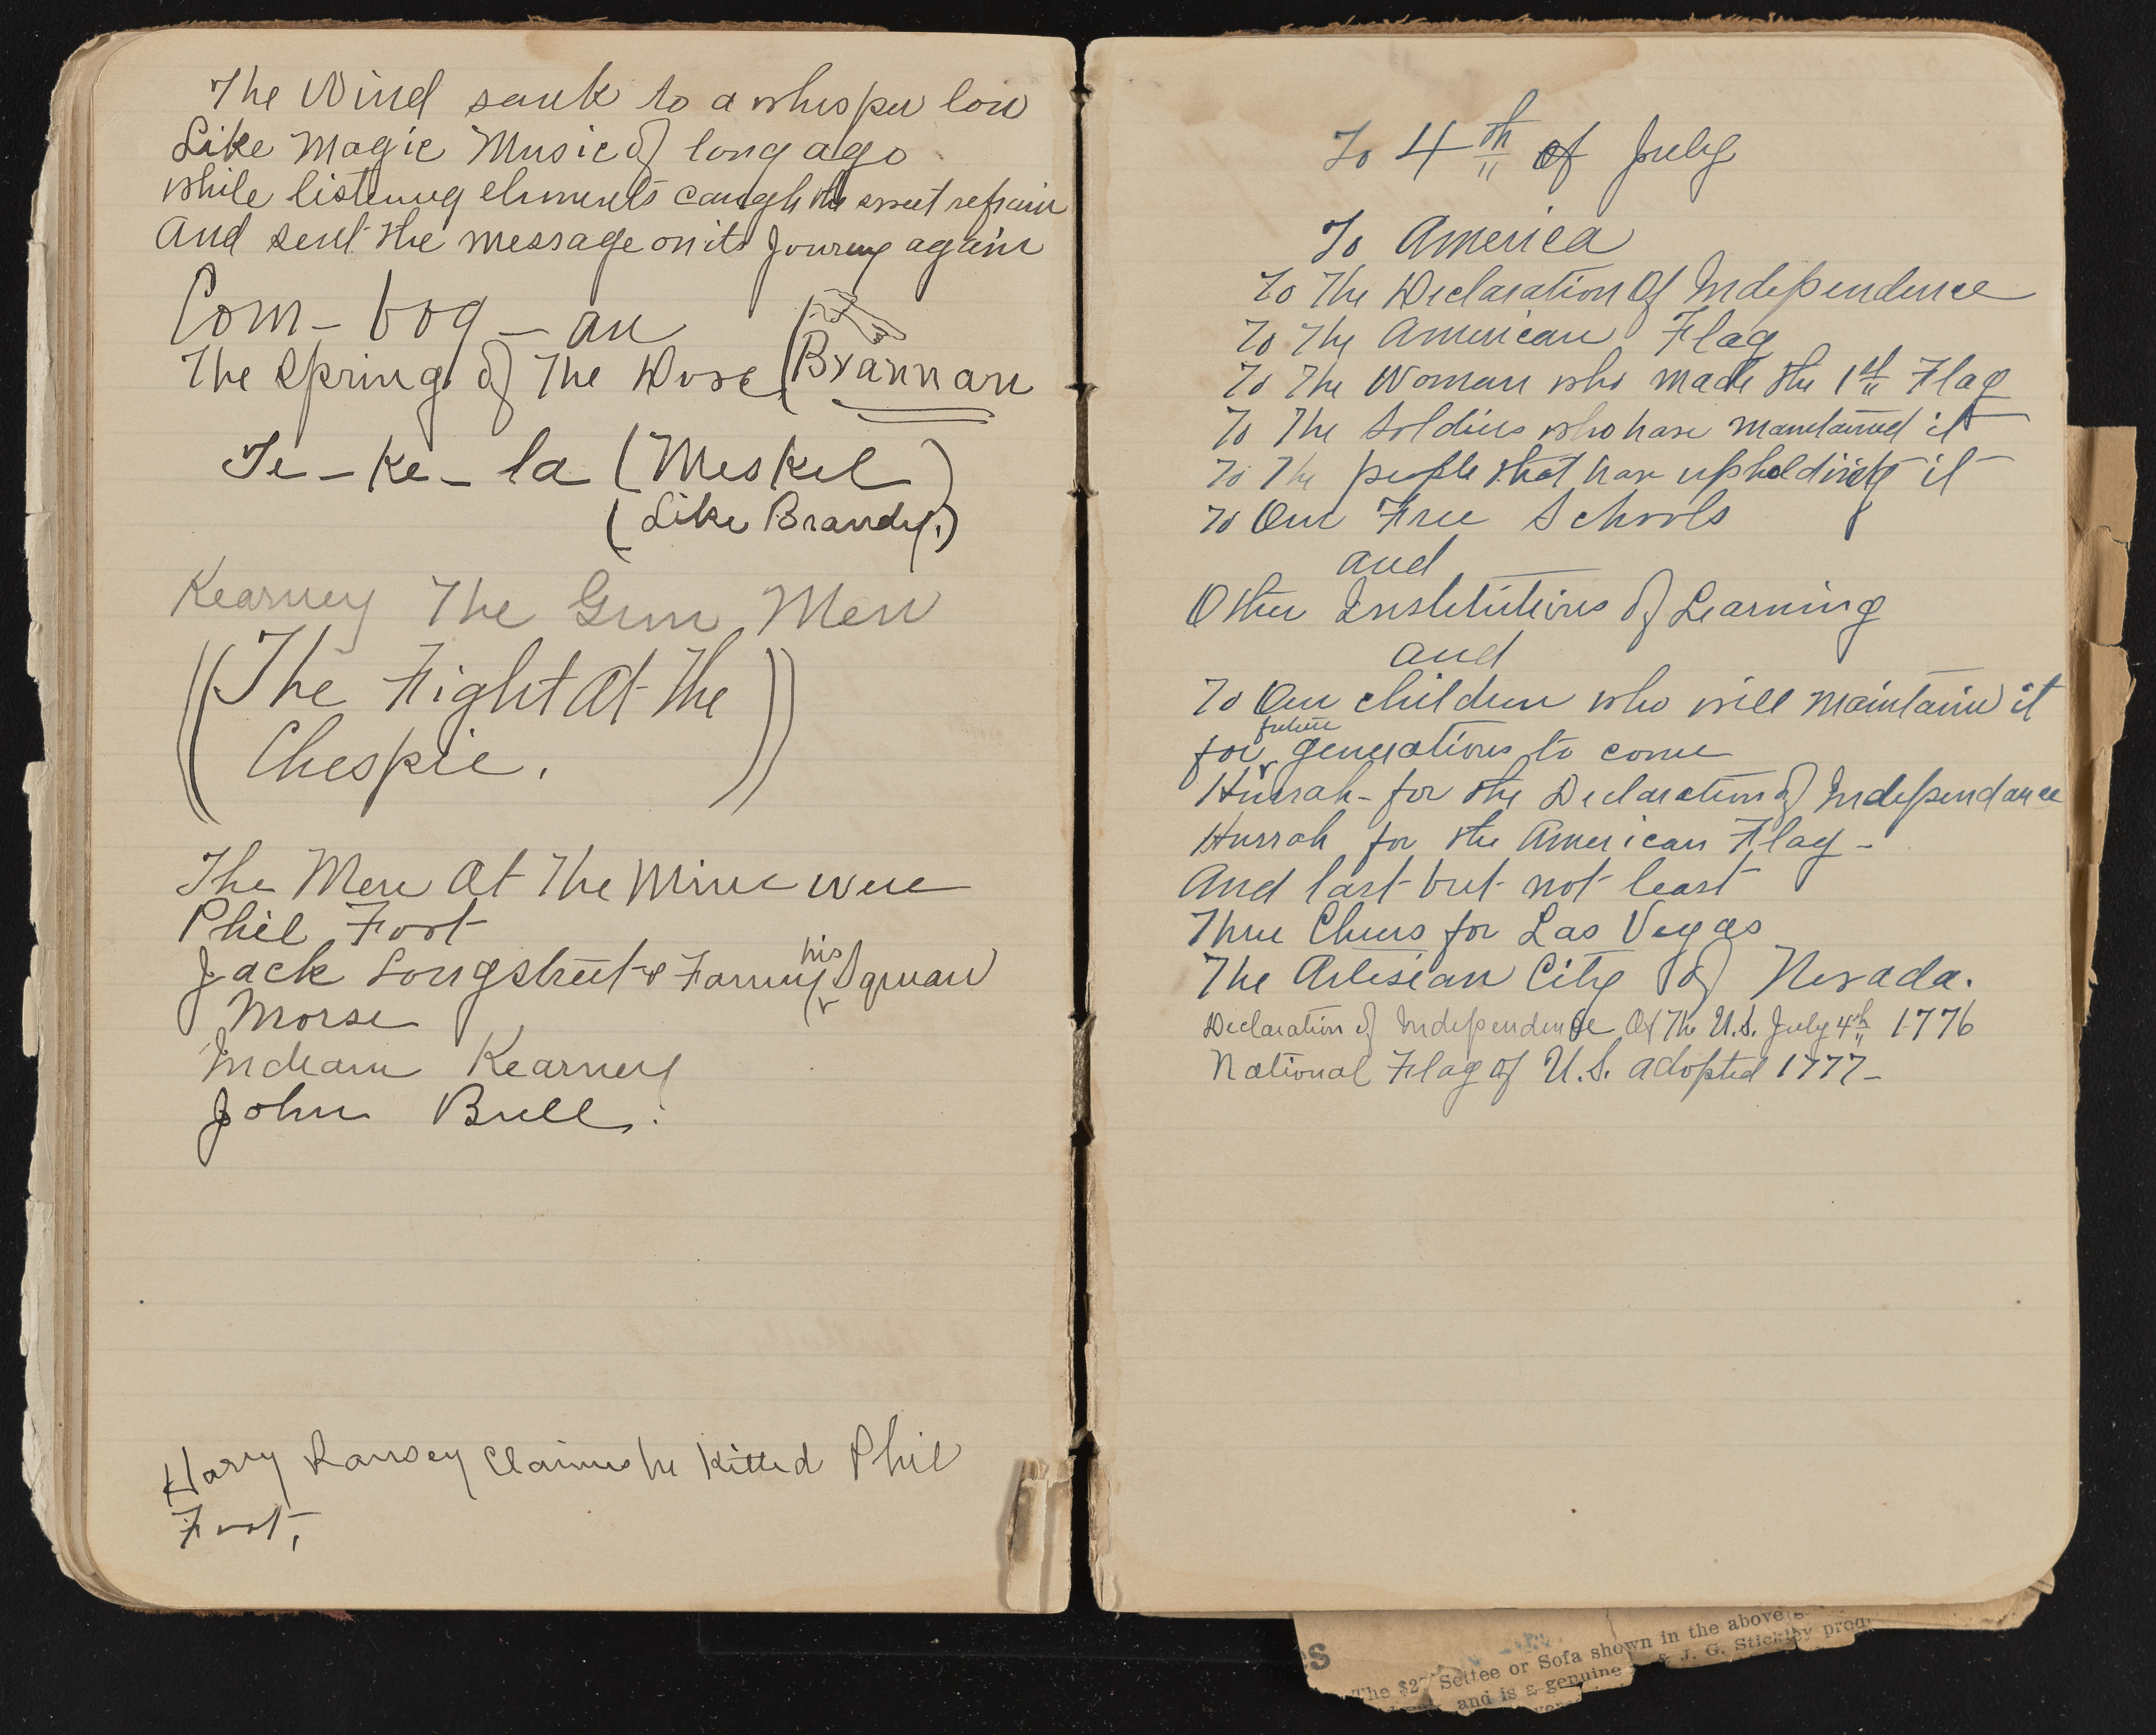 The Wind sank to a whisper low
Like Magic Music of long ago
while listening elements caught the sweet refrain
And sent the message on its Jourey again
Com - bog - an
The Spring of The Dove (Brannan
Te - ke - la (Meskel)
(Like Brandy.)
Kearney The Gun Men
((The Fight At The
Chespie. ))
The Men At The Mine were
Phil Foot
Jack Longstreet & Fanny his Squaw
Morse
Indian Kearney
John Bull.
Harry Ramsey Claims he Killed Phil
Foot,
To 4th of July
To America
To The Declaration Of Independence
To The American Flag
To The Woman who made the 1st Flag
To The Soldiers who have maintained it
To The people that have upholding it
To Our Free Schools
and
Other Institutions of Learning
and
To Our children who will maintain it
for future generations to come
Hurrah - for the Declaration of Independance
Hurrah for the American Flag -
And last but not least
Three Cheers for Las Vegas
The Artesian City of Nevada.
Declaration of Independence Of The U.S. July 4th 1776
National Flag of U.S. adopted 1777 -
s
The $27 Settee or Sofa shown in the above
and is a genuine & J. G. Stickley